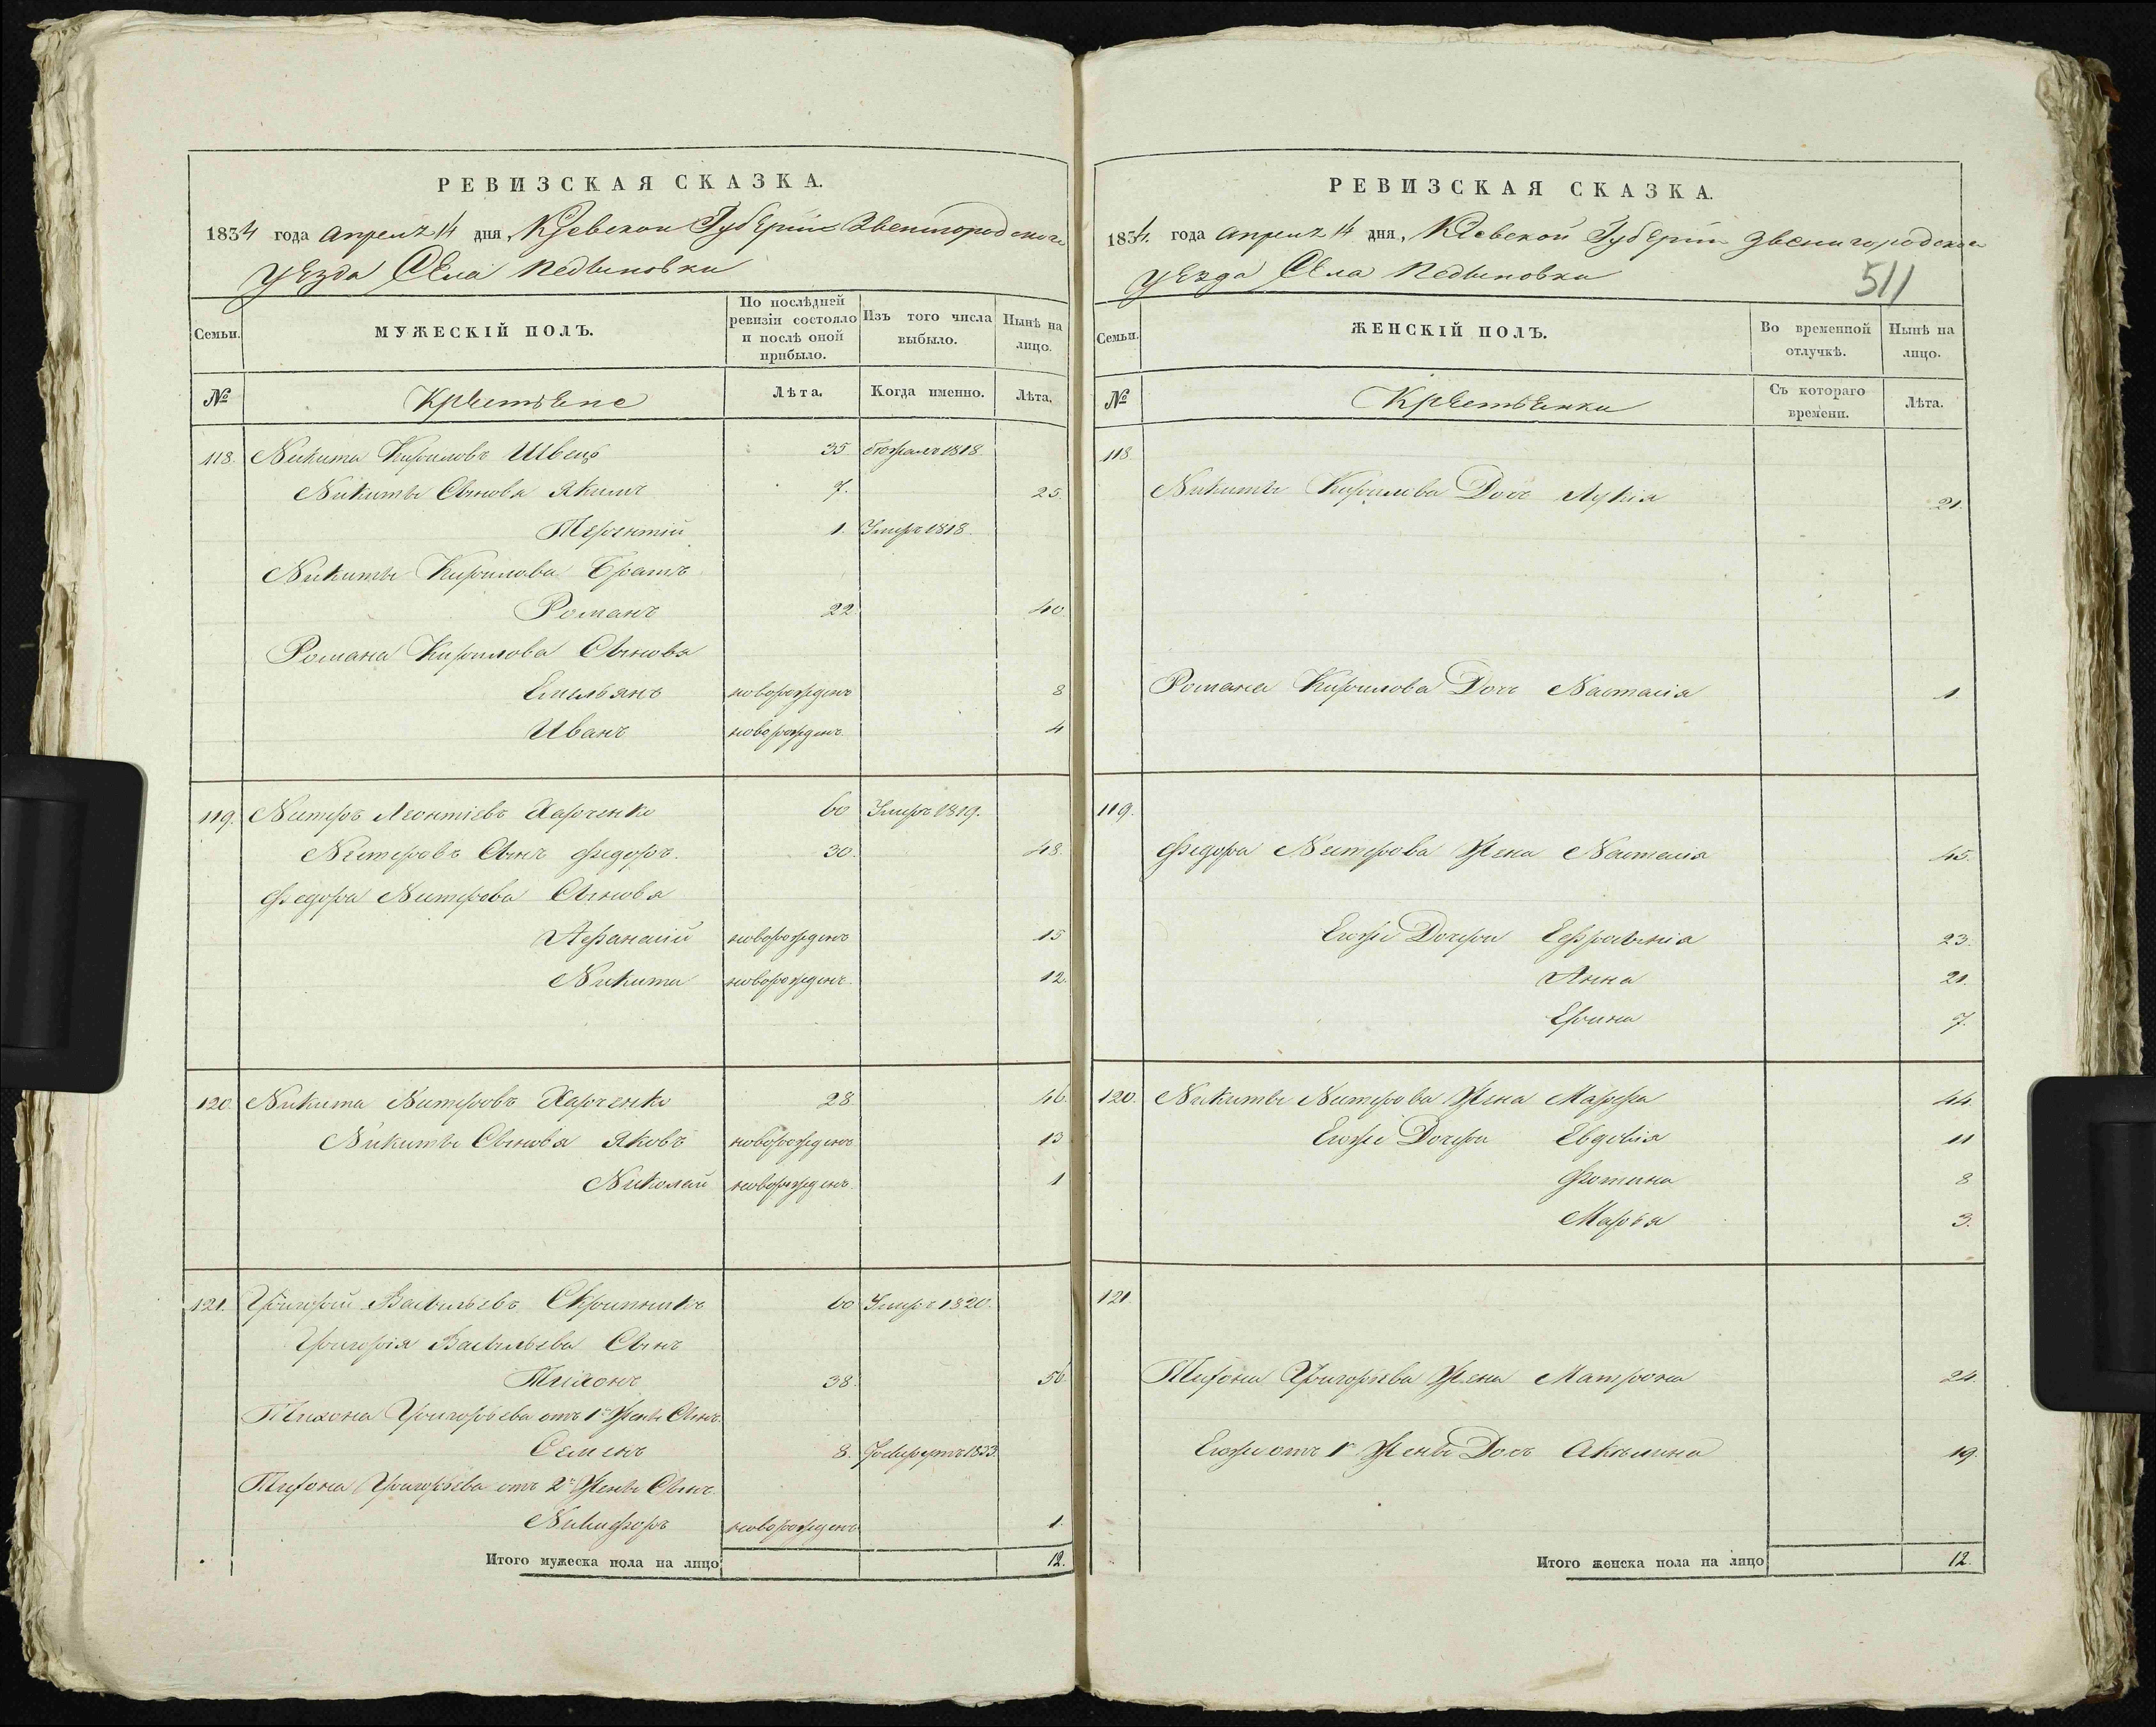 РЕВИЗСКАЯ СКАЗКА.
1834 года Апреля 14 дня, Кіевской Губерніи Звенигородского
уезда Села Педыновки
Семьи.
МУЖЕСКІЙ ПОЛЪ.
По послѣдней ревизіи состояло и послѣ оной прибыло.
Изъ того числа выбыло.
Нынѣ на лицо.
№
Крестьяне
Лѣта.
Когда именно.
Лѣта.
118. Никита Кириловъ Швецъ 35 бежалъ 1818.
Никиты Сыновья Якимъ 7. 25.
Терентій 1. Умеръ 1818.
Никиты Кирилова Братъ
Романъ 22 40.
Романа Кирилова Сыновья
Емильянъ новорожденъ 8
Иванъ новорожденъ 4
119. Нестеръ Леонтіевъ Харченко 60 Умеръ 1819.
Нестеровъ Сынъ Федоръ. 30. 48.
Федора Нестерова Сыновья
Афанасій новорожденъ 15
Никита новорожденъ. 12.
120. Никита Нестеровъ Харченко 28 46.
Никиты Сыновья Яковъ новорожденъ 13
Николай новорожденъ. 1
121. Григорій Васильевъ Скрипникъ 60 Умеръ 1820.
Григорія Васильева Сынъ
Тихонъ 38. 56.
Тихона Григорьева отъ 1й Жены Сынъ
Семенъ 8. 1833.
Тихона Григорьева отъ 2й Жены Сынъ
Никифоръ новорожденъ 1.
Итого мужеска пола на лицо 12.
РЕВИЗСКАЯ СКАЗКА.
1834. года Апреля 14 дня, Кіевской Губерніи Звенигородского
уезда Села Педыновки
511
Семьи.
ЖЕНСКІЙ ПОЛЪ.
Во временной отлучкѣ.
Нынѣ на лицо.
№
Крестьянки
Съ котораго времени.
Лѣта.
118.
Никиты Кирилова Дочь Лукія 21.
Романа Кирилова Дочь Настасія 1.
119.
Федора Нестерова Жена Настасія 45.
Егоже Дочери Ефросинія 23.
Анна 21.
Ерина 7.
120. Никиты Нестерова Жена Марфа 44.
Егоже Дочери Евдокія 11
Фотина 8
Марья 3.
121.
Тихона Григорьева Жена Матрона 24.
Егоже отъ 1й Жены Дочь Акилина 19.
Итого женска пола на лицо 12.